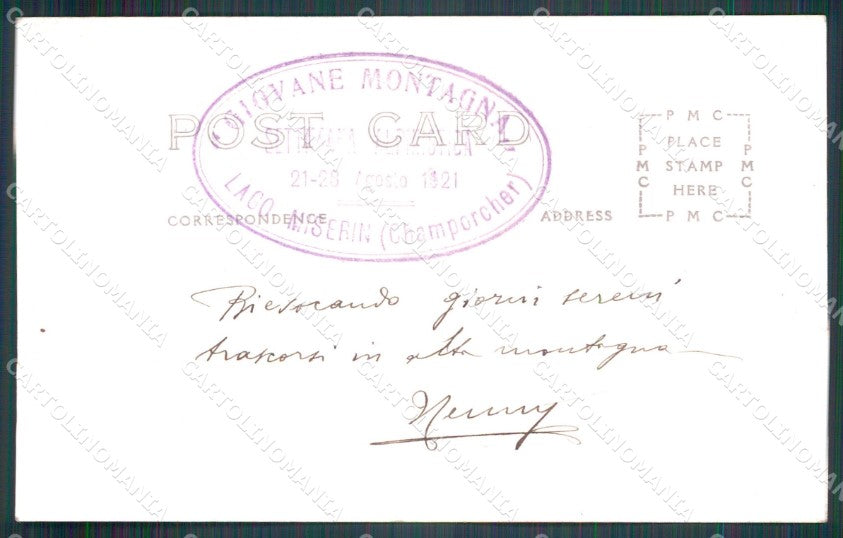 GIOVANE MONTAGNA
POST CARD
21-28 Agosto 1921
LAGO MISERIN (Champorcher)
CORRESPONDENCE
ADDRESS
PMC
PLACE
STAMP
HERE
PMC
PMC
PMC
Rievocando giorni sereni
trascorsi in alta montagna
Nenny
CARTOLINOMANIA